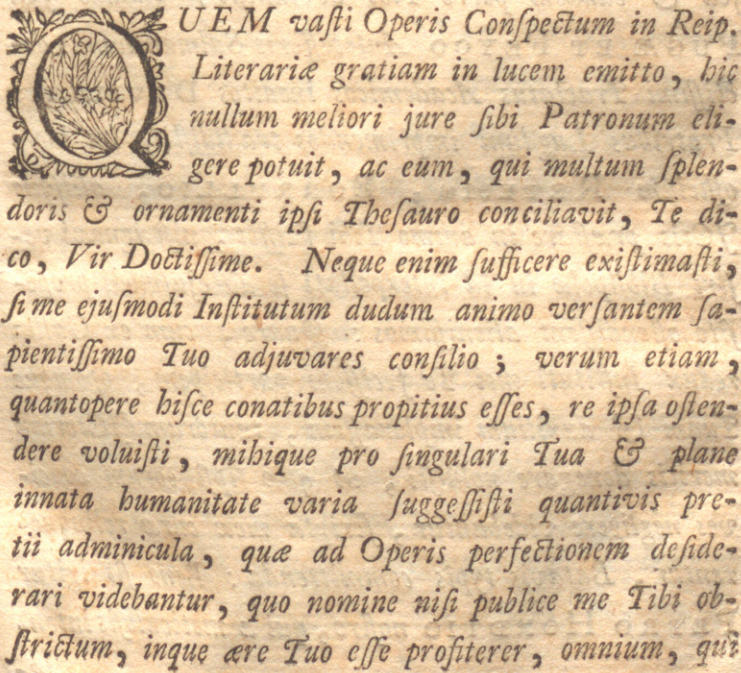 QUEM vaſti Operis Conſpectum in Reip.
Literariæ gratiam in lucem emitto, hic
nullum meliori jure ſibi Patronum eli-
gere potuit, ac eum, qui multum ſplen-
doris & ornamenti ipſi Theſauro conciliavit, Te di-
co, Vir Doctiſſime. Neque enim ſufficere exiſtimaſti,
ſi me ejuſmodi Inſtitutum dudum animo verſantem ſa-
pientiſſimo Tuo adjuvares conſilio; verum etiam,
quantopere hiſce conatibus propitius eſſes, re ipſa oſten-
dere voluiſti, mihique pro ſingulari Tua & plane
innata humanitate varia ſuggeſſiſti quantivis pre-
tii adminicula, quæ ad Operis perfectionem deſide-
rari videbantur, quo nomine niſi publice me Tibi ob-
ſtrictum, inque ære Tuo eſſe profiterer, omnium, qui